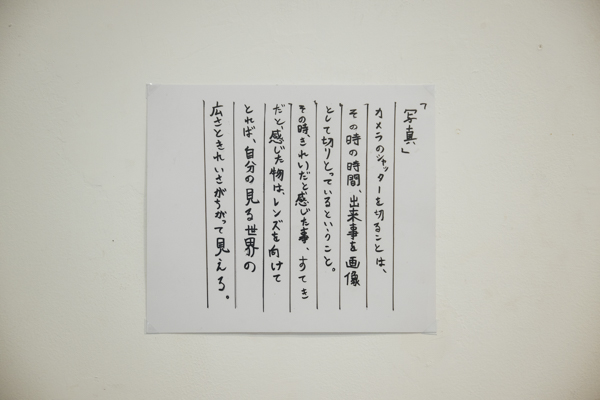 「写真」
カメラのシャッターを切ることは、
その時の時間、出来事を画像
として切りとっているということ。
その時、きれいだと感じた事、すてき
だと、感じた物は、レンズを向けて
とれば、自分の見る世界の
広さときれいさがちがって見える。